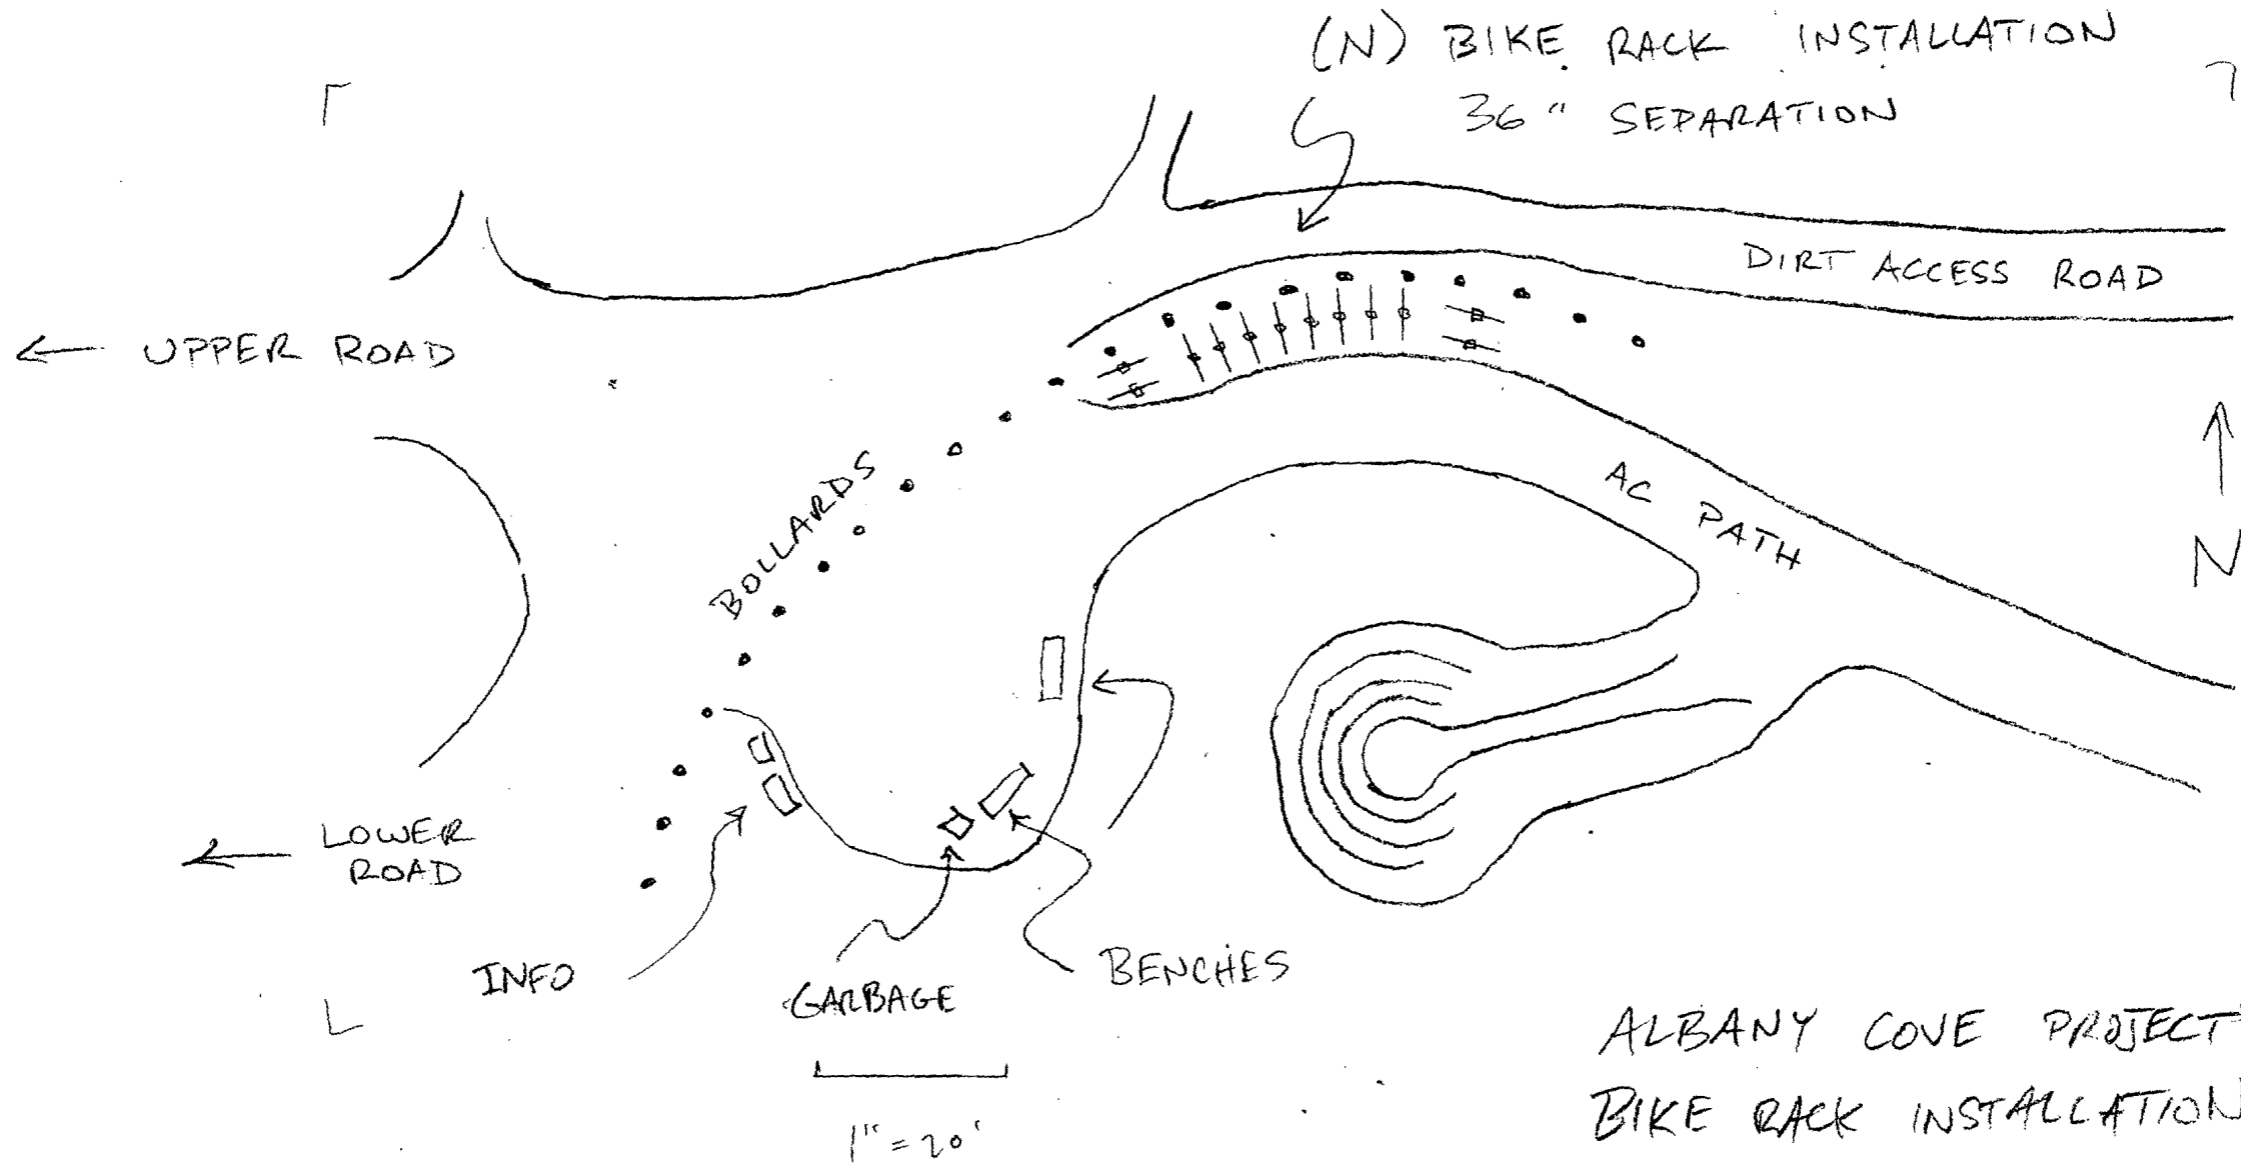 (N) BIKE RACK INSTALLATION
36" SEPARATION
DIRT ACCESS ROAD
← UPPER ROAD
BOLLARDS
AC PATH
N
← LOWER
ROAD
INFO
GARBAGE
BENCHES
1" = 20'
ALBANY COVE PROJECT
BIKE RACK INSTALLATION